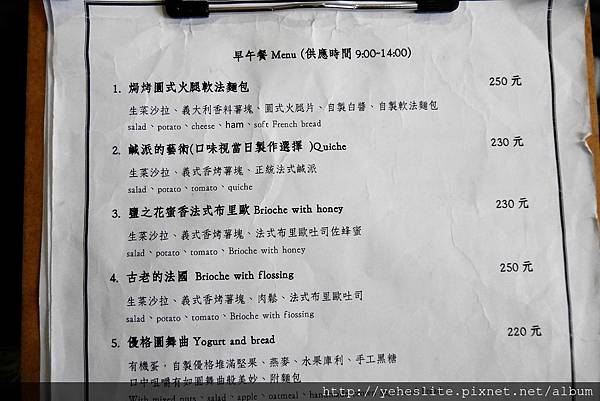 早午餐 Menu (供應時間 9:00~14:00)
1. 焗烤圓式火腿軟法麵包 250 元
生菜沙拉、義大利香料薯塊、圓式火腿片、自製白醬、自製軟法麵包
salad、potato、cheese、ham、soft French bread
2. 鹹派的藝術(口味視當日製作選擇 )Quiche 230 元
生菜沙拉、義式香烤薯塊、正統法式鹹派
salad、potato、tomato、quiche
3. 鹽之花蜜香法式布里歐 Brioche with honey 230 元
生菜沙拉、義式香烤薯塊、法式布里歐吐司佐蜂蜜
salad、potato、tomato、Brioche with honey
4. 古老的法國 Brioche with flossing 250 元
生菜沙拉、義式香烤薯塊、肉鬆、法式布里歐吐司
salad、potato、tomato、Brioche with flossing
5. 優格圓舞曲 Yogurt and bread 220 元
有機蛋，自製優格堆滿堅果、燕麥、水果庫利、手工黑糖
口中咀嚼有如圓舞曲般美妙、附麵包
With mixed nuts、salad、apple、oatmeal、
http://yeheslite.pixnet.net/album